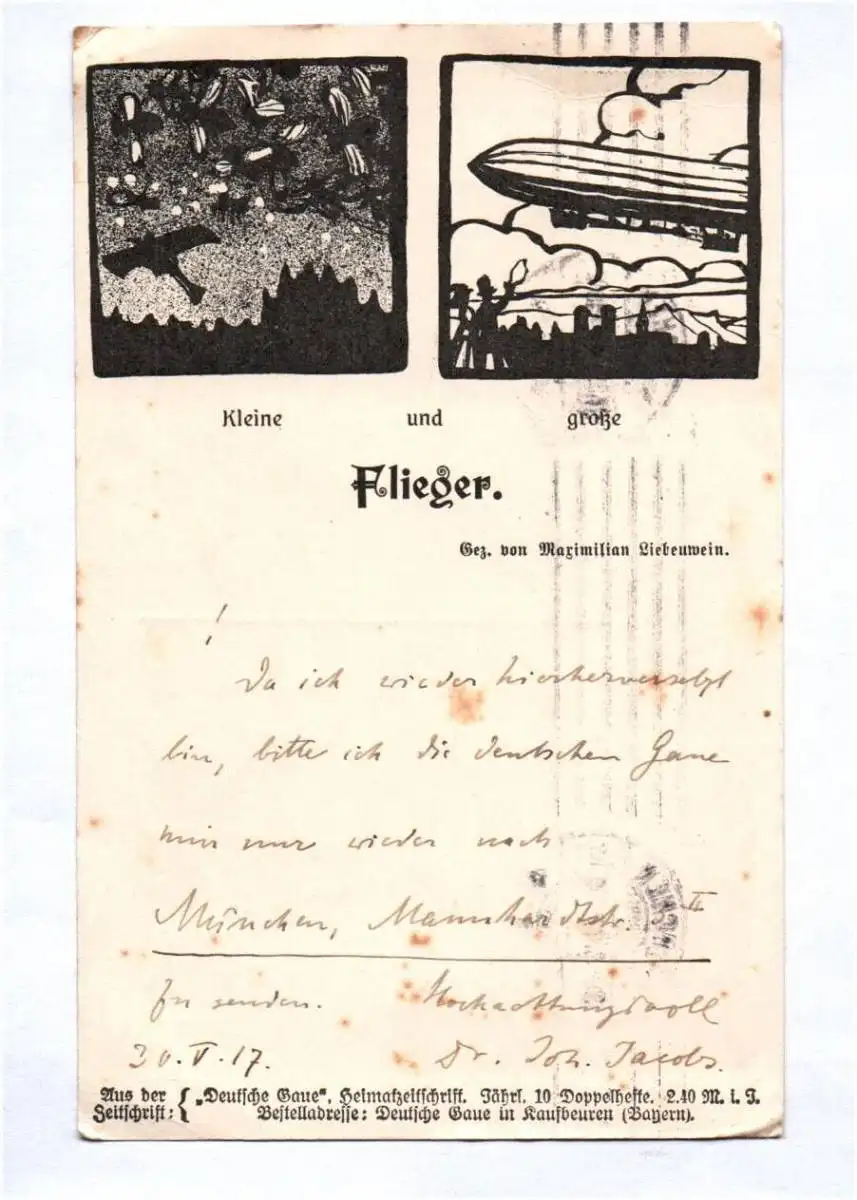 Kleine und große
Flieger.
Gez. von Maximilian Liebenwein.
!
Da ich wieder hierherversetzt
bin, bitte ich die deutschen Gaue
mir nur wieder nach
München, Mannhardtstr. II
zu senden. Hochachtungsvoll
30.V.17. Dr. Joh. Jacobs.
Aus der Zeitschrift: { „Deutsche Gaue", Heimatzeitschrift. Jährl. 10 Doppelhefte. 2.40 M. i. J.
Bestelladresse: Deutsche Gaue in Kaufbeuren (Bayern).